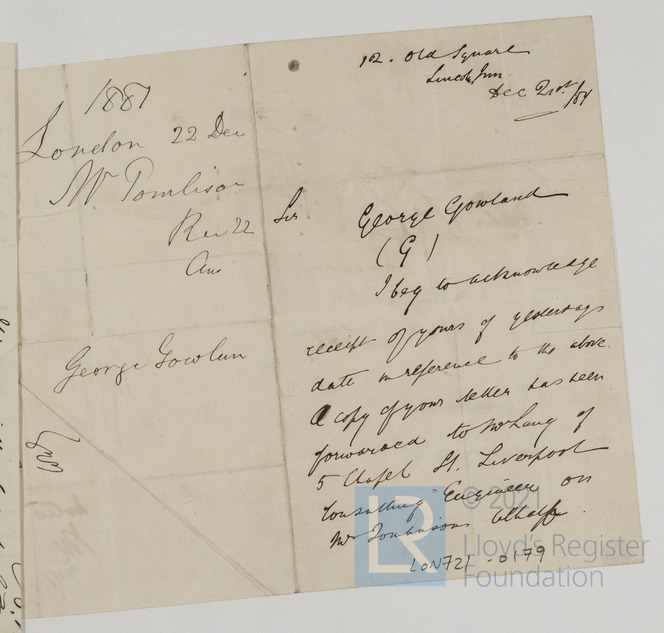 1887
London 22 Dec
Mr Tomlison
Rec 22
Ans
George Gowlan
12. Old Square
Lincolns Inn
Dec 21st /87
Sir
George Gowland
(G)
I beg to acknowledge
receipt of yours of yesterdays
date in reference to the above.
A copy of your letter has been
forwarded to Mr Lang of
5 Chapel St. Liverpool
Consulting Engineer on
Mr Tomlinsons behalf.
LON721-0179
© 2021
LR
Lloyd's Register
Foundation